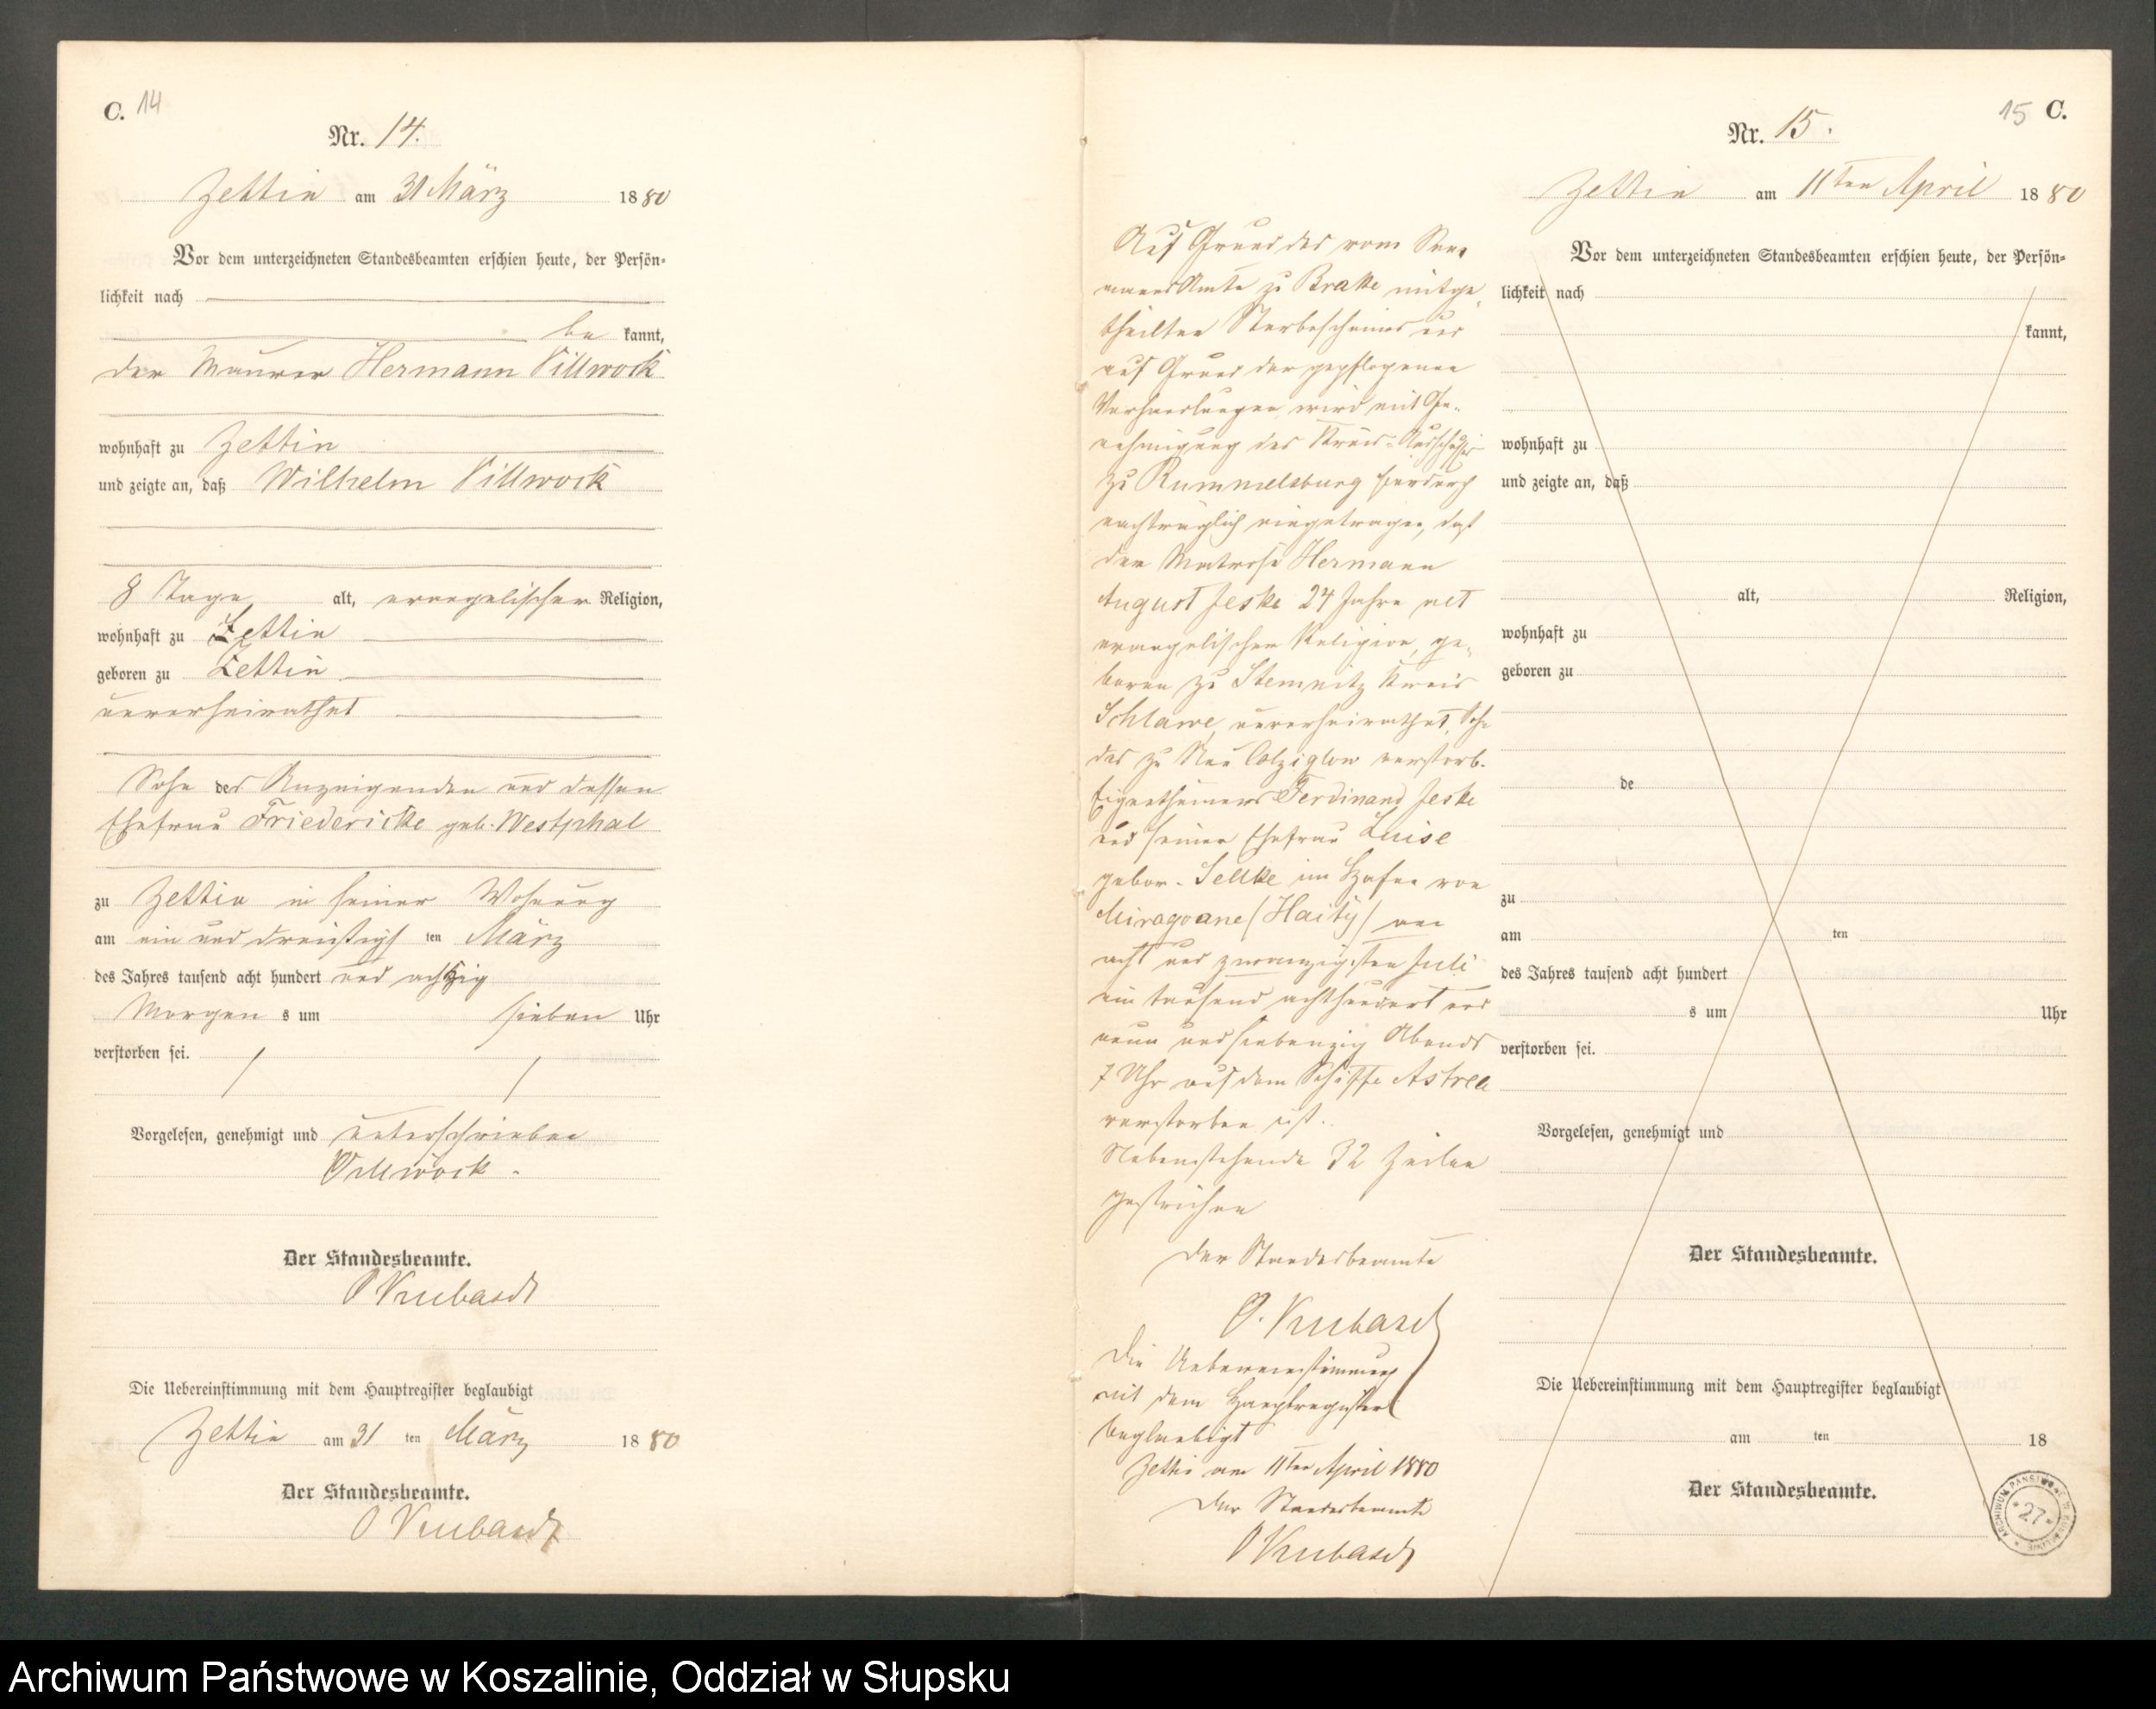 C. 14
Nr. 14.
Zettin am 31 März 1880
Vor dem unterzeichneten Standesbeamten erschien heute, der Persön-
lichkeit nach
be kannt,
der Maurer Hermann Villwock
wohnhaft zu Zettin
und zeigte an, daß Wilhelm Villwock
8 Tage alt, evangelischer Religion,
wohnhaft zu Zettin
geboren zu Zettin
unverheirathet
Sohn des Anzeigenden und dessen
Ehefrau Friedericke geb. Westphal
zu Zettin in seiner Wohnung
am ein und dreißigst ten März
des Jahres tausend acht hundert und achtzig
Morgen s um sieben Uhr
verstorben sei.
Vorgelesen, genehmigt und unterschrieben
Villwock
Der Standesbeamte.
Die Uebereinstimmung mit dem Hauptregister beglaubigt
Zettin am 31 ten März 1880
Der Standesbeamte.
15 C.
Nr. 15.
Zettin am 11ten April 1880
Auf Grund des vom See-
manns Amte zu Brake mitge-
theilten Sterbescheines und
auf Grund der gepflogenen
Verhandlungen wird mit Ge-
nehmigung des Kreis-Ausschußes
zu Rummelsburg hierdurch
nachträglich eingetragen, daß
der Matrose Hermann
August Jeske 24 Jahre alt
evangelischer Religion, ge-
boren zu Stemnitz Kreis
Schlawe, unverheirathet, Sohn
des zu Neu Colziglow verstorb.
Eigenthümers Ferdinand Jeske
und seiner Ehefrau Luise
gebor. Sellke im Hafen von
Miragoane (Haity) am
acht und zwanzigsten Juli
ein tausend achthundert und
neun und siebenzig Abends
7 Uhr auf dem Schiffe Astrea
verstorben ist.
Nebenstehende 32 Zeilen
gestrichen
Der Standesbeamte
Die Uebereinstimmung
mit dem Hauptregister
beglaubigt
Zettin am 11ten April 1880
Der Standesbeamte
Vor dem unterzeichneten Standesbeamten erschien heute, der Persön-
lichkeit nach
kannt,
wohnhaft zu
und zeigte an, daß
alt, Religion,
wohnhaft zu
geboren zu
de
zu
am ten
des Jahres tausend acht hundert
s um Uhr
verstorben sei.
Vorgelesen, genehmigt und
Der Standesbeamte.
Die Uebereinstimmung mit dem Hauptregister beglaubigt
am ten 18
Der Standesbeamte.
ARCHIWUM PAŃSTWOWE W KOSZALINIE
*27*
Archiwum Państwowe w Koszalinie, Oddział w Słupsku